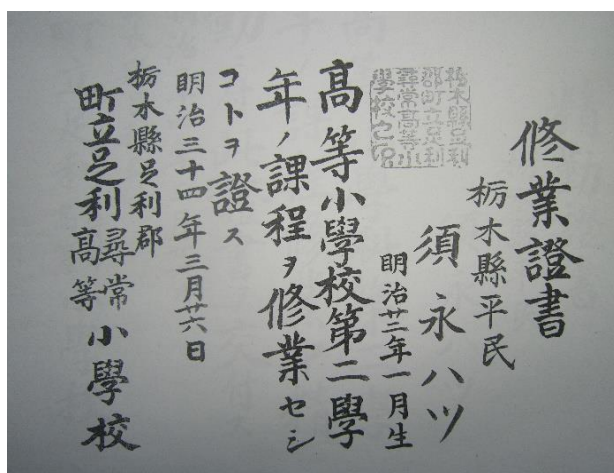 修業證書
栃木縣平民
須永ハツ
明治廿二年一月生
栃木縣足利
郡町立足利
尋常高等小
學校之印
高等小學校第二學
年ノ課程ヲ修業セシ
コトヲ證ス
明治三十四年三月廿六日
栃木縣足利郡
町立足利尋常高等小學校